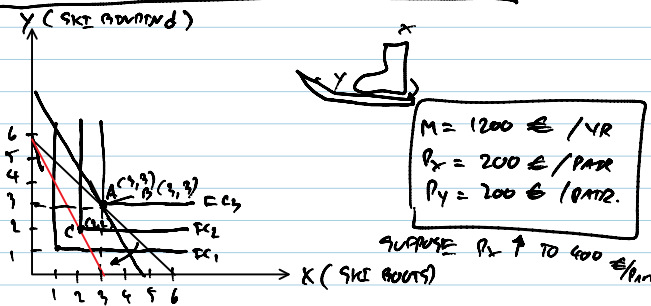 Y (SKI BINDING)
X
Y
6
5
4
3
2
1
A (3,3) B (3,3)
IC3
C (2,2)
IC2
IC1
1 2 3 4 5 6
X (SKI BOOTS)
M = 1200 € /YR
Px = 200 € /PAIR
Py = 200 € /PAIR.
SUPPOSE Px ↑ TO 400 €/PAIR